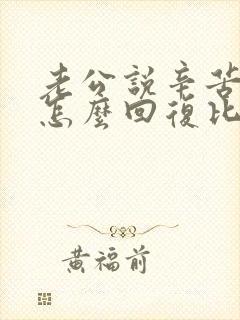 老公說辛苦
怎麼回復比
黃福前